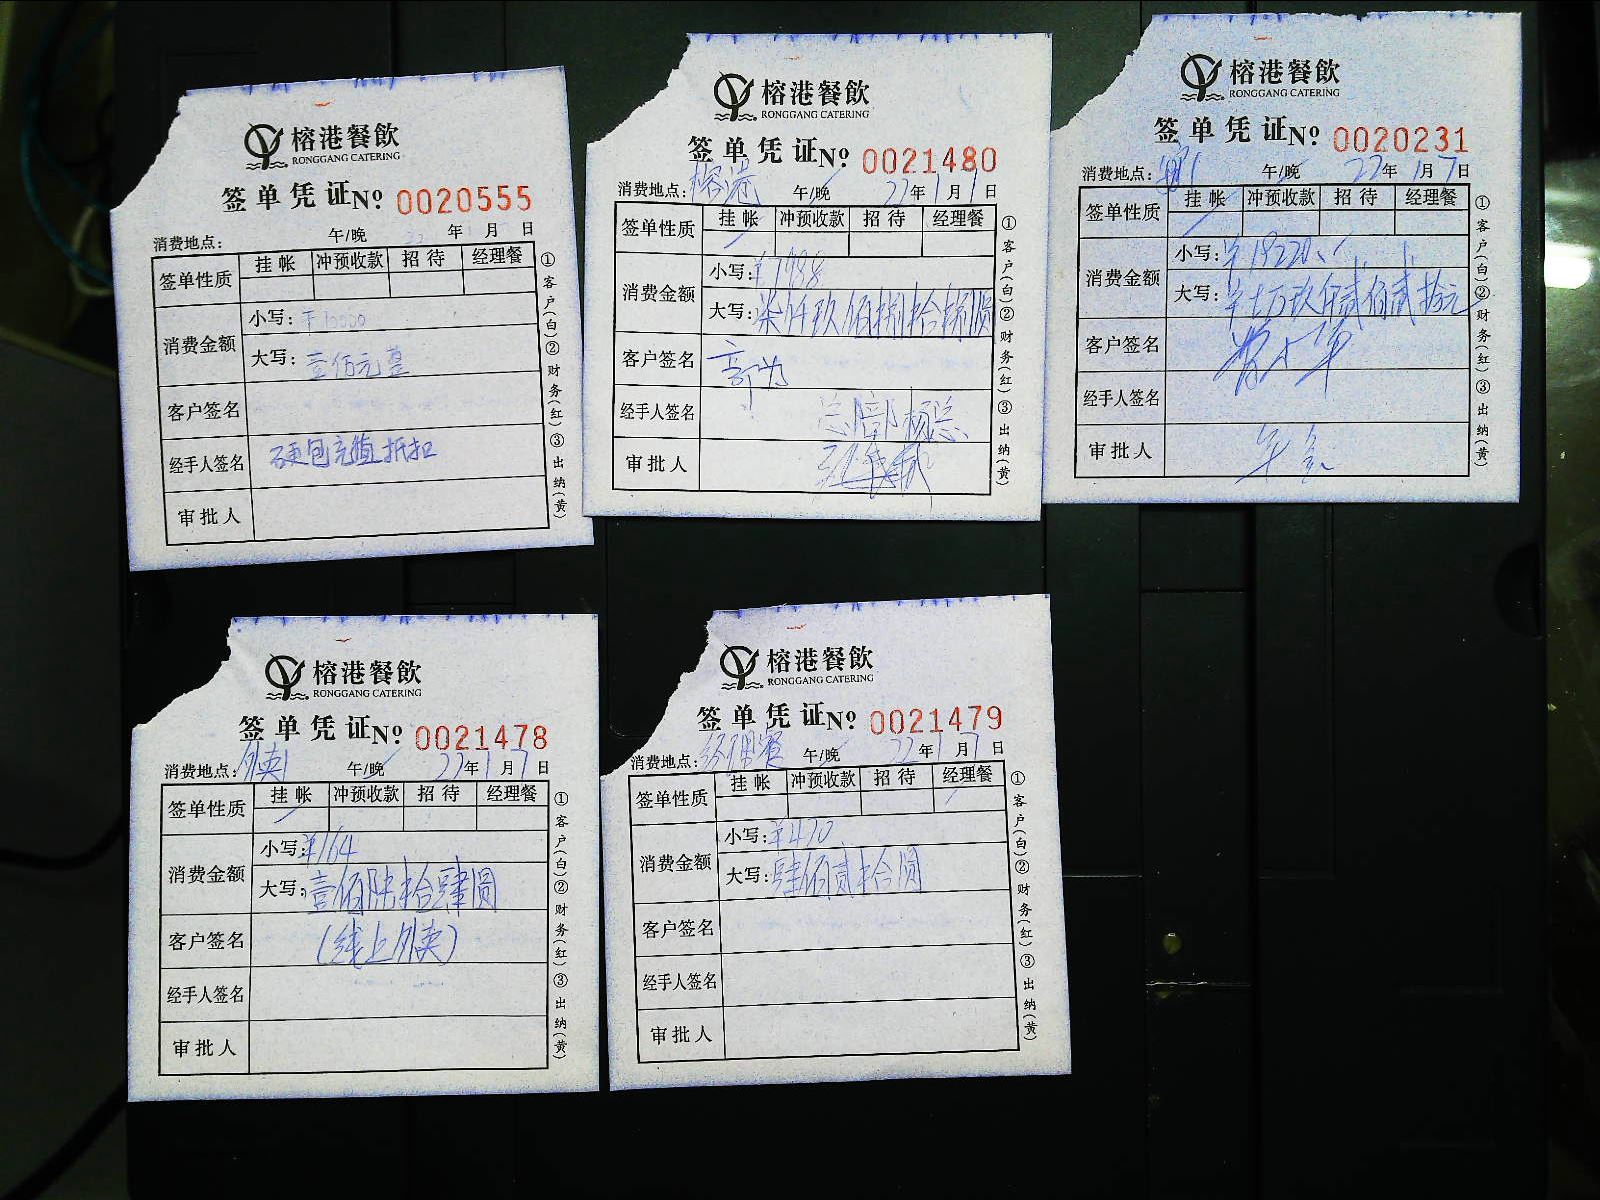 榕港餐飲
RONGGANG CATERING
签单凭证 Nº 0020555
消费地点: 午/晚 22年 月 日
签单性质 挂帐 冲预收款 招待 经理餐
消费金额
小写:¥10000
大写:壹佰元整
客户签名
经手人签名 硬包充值抵扣
审批人
①客户(白)②财务(红)③出纳(黄)
榕港餐飲
RONGGANG CATERING
签单凭证 Nº 0021480
消费地点:榕港 午/晚 22年1月1日
签单性质 挂帐 冲预收款 招待 经理餐
消费金额
小写:¥7988
大写:柒仟玖佰捌拾捌圆
客户签名
经手人签名 总部杨总
审批人
①客户(白)②财务(红)③出纳(黄)
榕港餐飲
RONGGANG CATERING
签单凭证 Nº 0020231
消费地点: 午/晚 22年1月7日
签单性质 挂帐 冲预收款 招待 经理餐
消费金额
小写:¥19220
大写: 万玖仟贰佰贰拾元
客户签名
经手人签名
审批人
①客户(白)②财务(红)③出纳(黄)
榕港餐飲
RONGGANG CATERING
签单凭证 Nº 0021478
消费地点:外卖1 午/晚 22年1月7日
签单性质 挂帐 冲预收款 招待 经理餐
消费金额
小写:¥164
大写:壹佰陆拾肆圆
客户签名 (线上外卖)
经手人签名
审批人
①客户(白)②财务(红)③出纳(黄)
榕港餐飲
RONGGANG CATERING
签单凭证 Nº 0021479
消费地点:经理餐 午/晚 22年1月7日
签单性质 挂帐 冲预收款 招待 经理餐
消费金额
小写:¥420
大写:肆佰贰拾圆
客户签名
经手人签名
审批人
①客户(白)②财务(红)③出纳(黄)